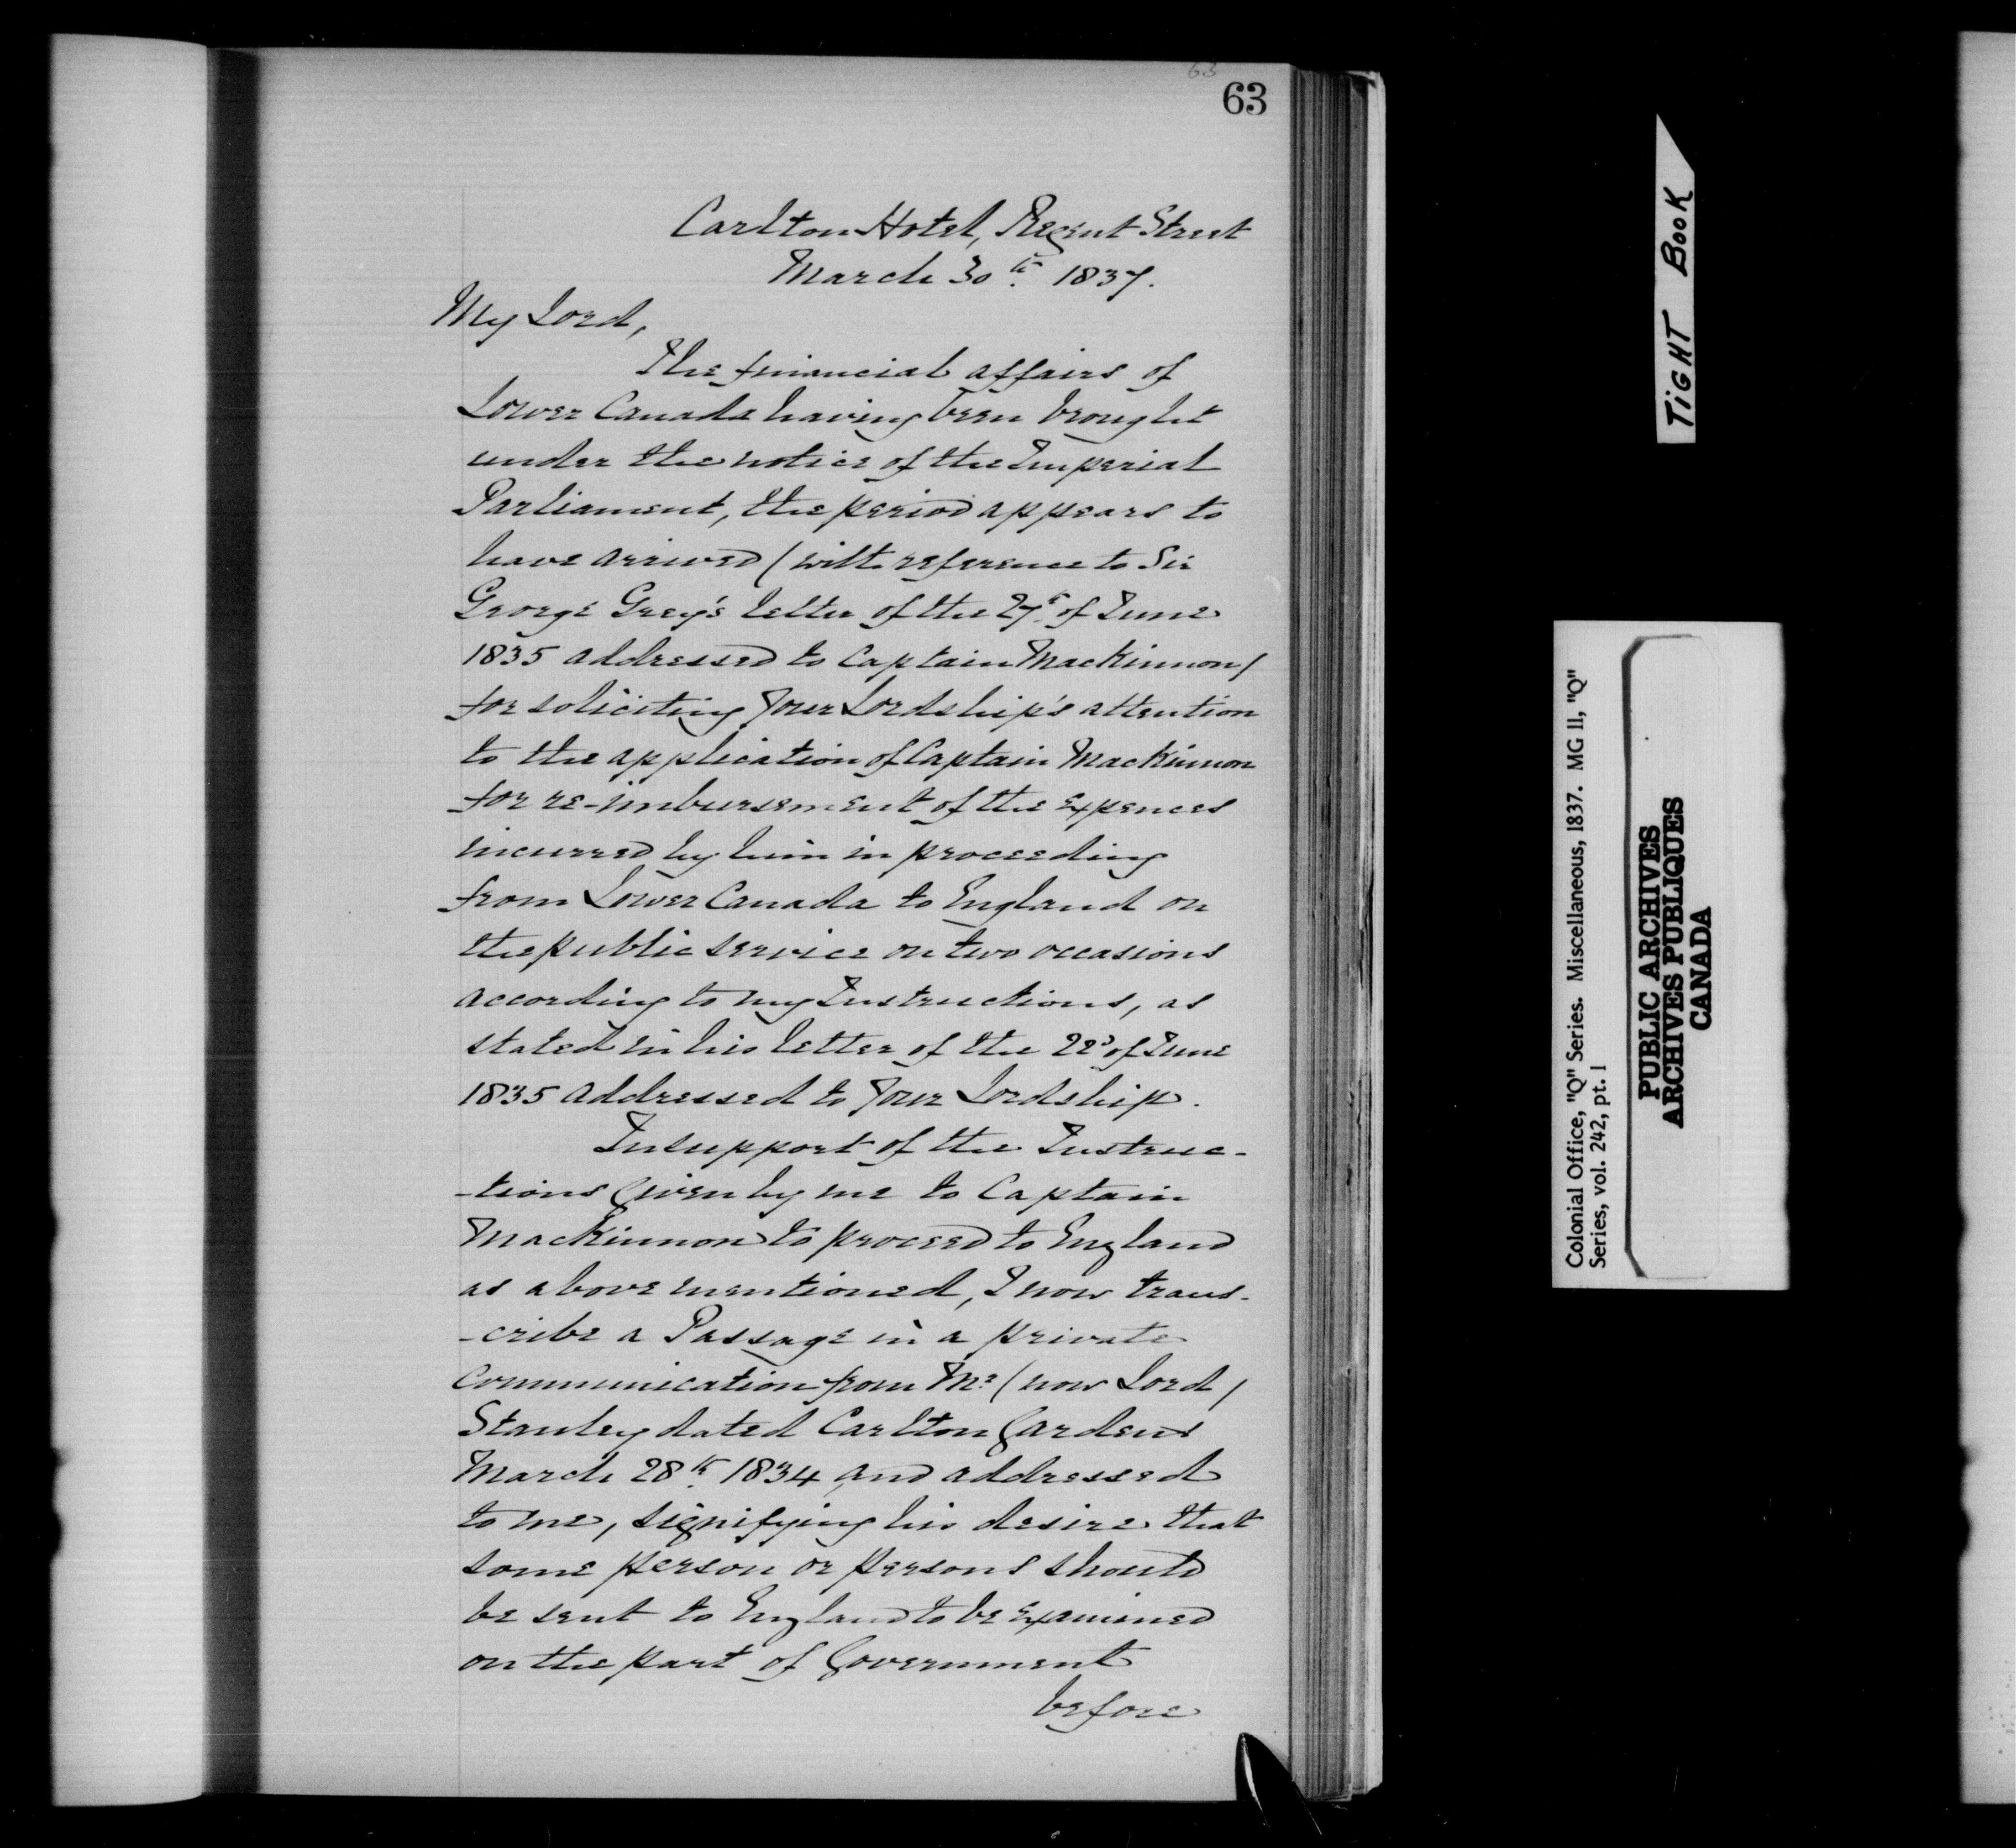 63
63
Carlton Hotel, Regent Street
March 30th. 1837.
My Lord,
The financial affairs of
Lower Canada having been brought
under the notice of the Imperial
Parliament, the period appears to
have arrived (with reference to Sir
George Grey's letter of the 27th. of June
1835 addressed to Captain MacKinnon/
for soliciting Your Lordship's attention
to the application of Captain MacKinnon
for re-imbursement of the expences
incurred by him in proceeding
from Lower Canada to England on
the public service on two occasions
according to my Instructions, as
stated in his letter of the 22d of June
1835 addressed to Your Lordship.
In support of the Instruc-
-tions Given by me to Captain
MacKinnon to proceed to England
as above mentioned, I now trans-
-cribe a Passage in a private
Communication from Mr. (now Lord/
Stanley dated Carlton Gardens
March 28th. 1834, and addressed
to me, signifying his desire that
some person or persons should
be sent to England to be examined
on the part of Government
before
TIGHT BOOK
Colonial Office, "Q" Series. Miscellaneous, 1837. MG 11, "Q"
Series, vol. 242, pt. 1
PUBLIC ARCHIVES
ARCHIVES PUBLIQUES
CANADA